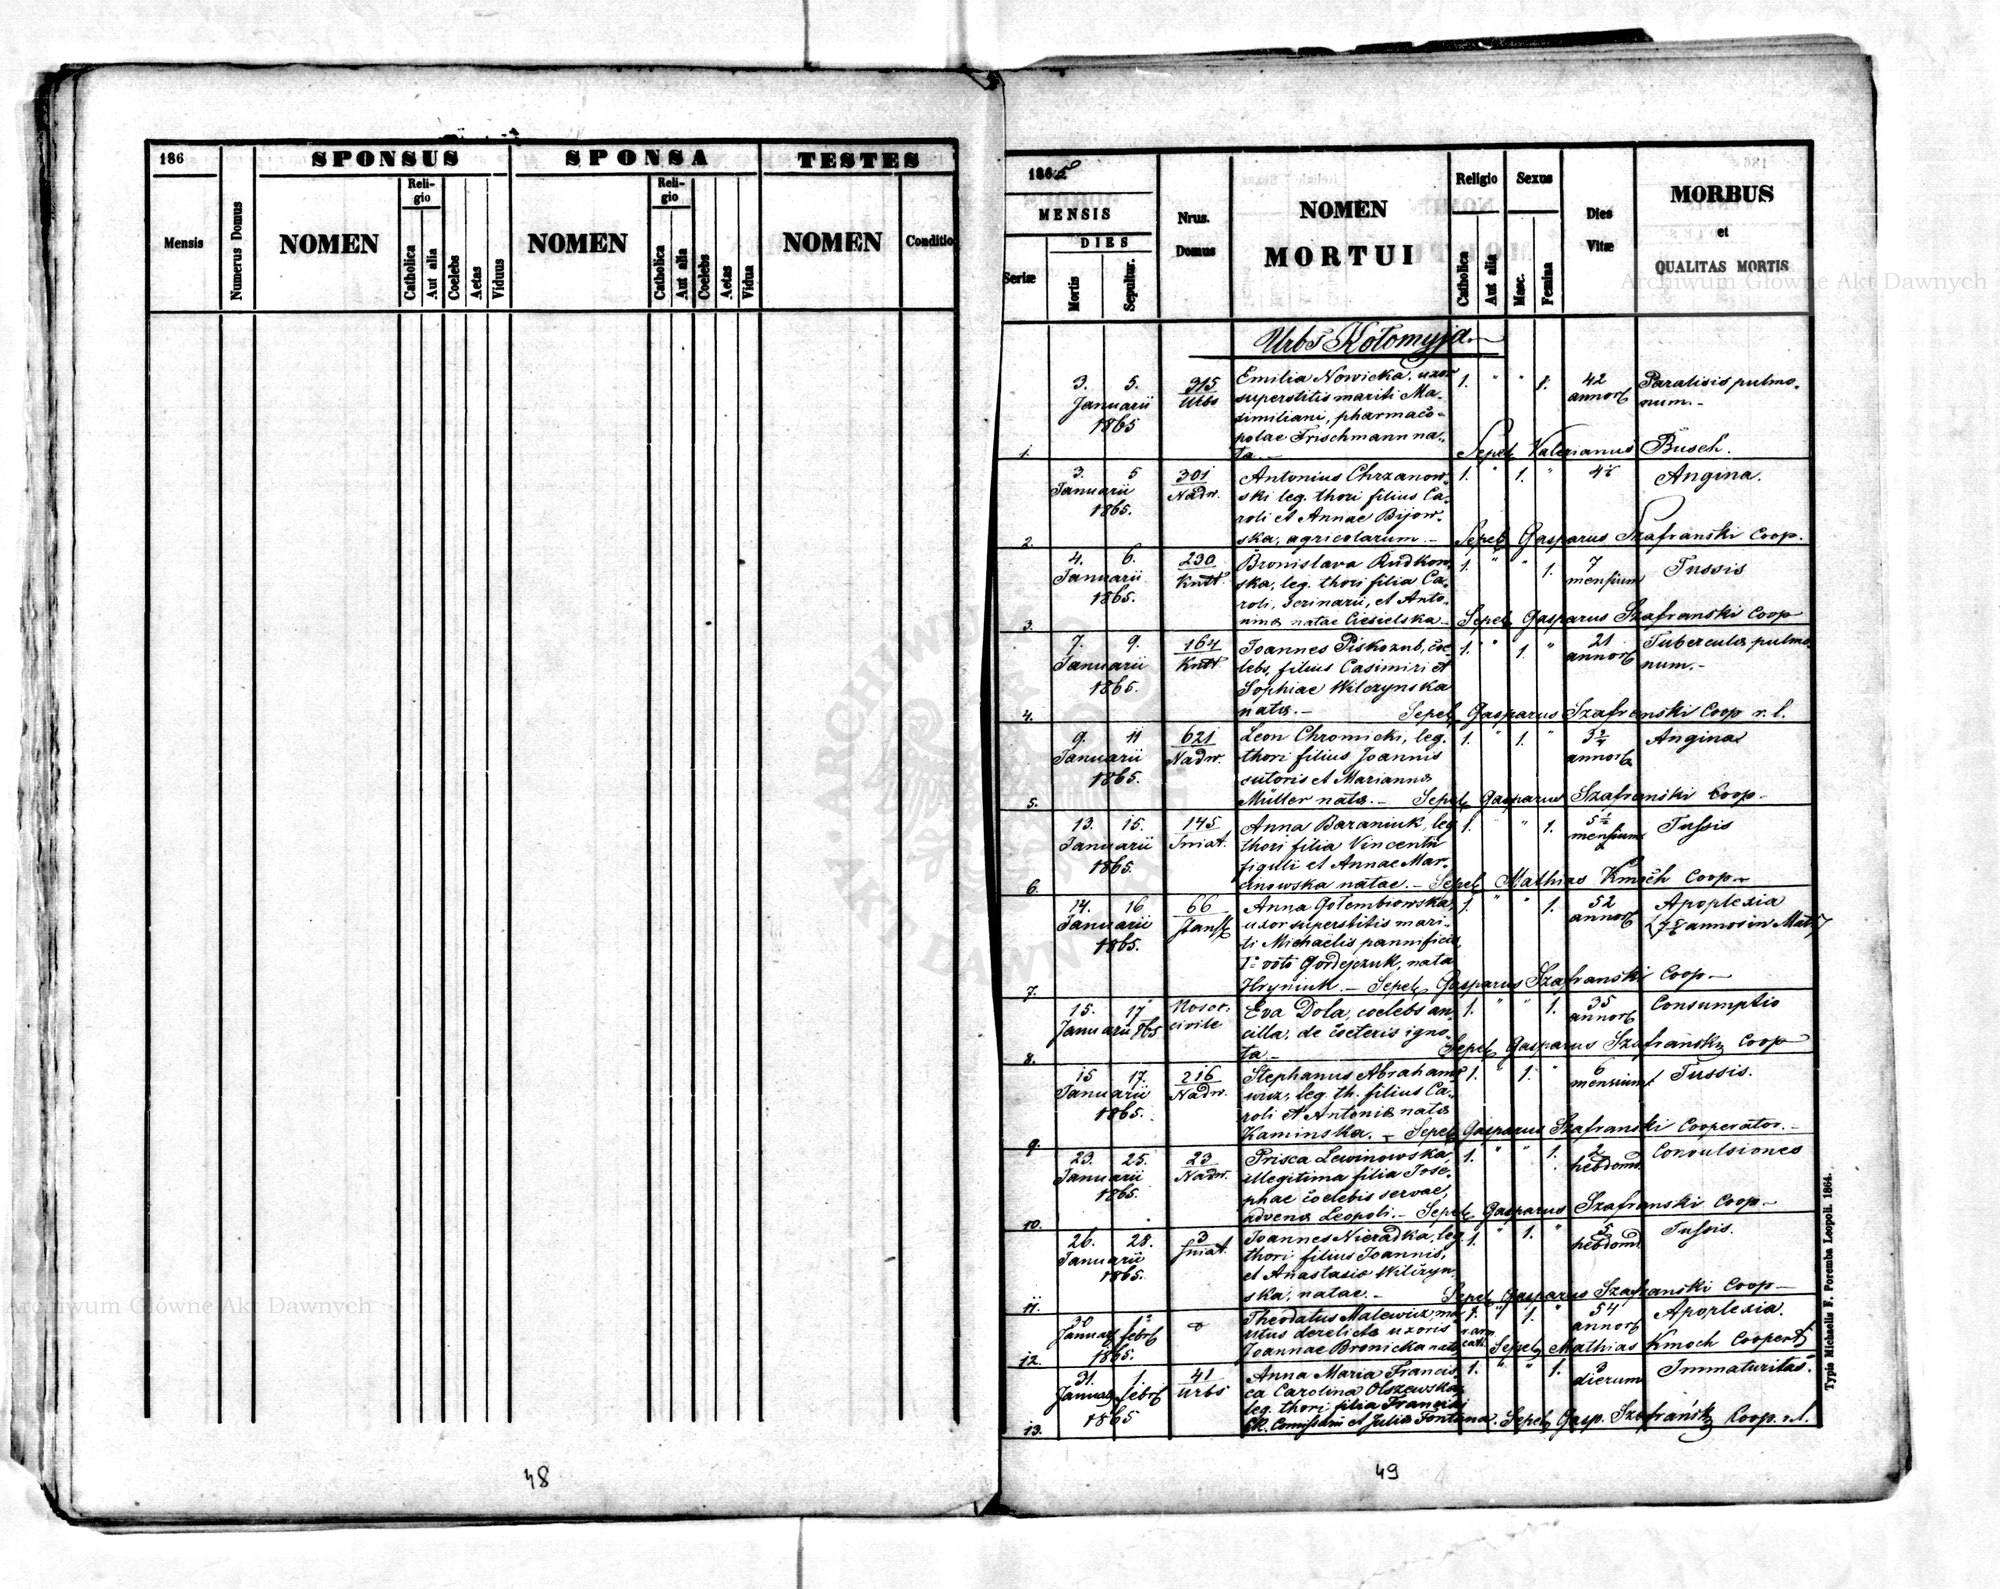 186
SPONSUS
SPONSA
TESTES
Mensis
Numerus Domus
NOMEN
Reli-
gio
Catholica
Aut alia
Coelebs
Aetas
Viduus
NOMEN
Reli-
gio
Catholica
Aut alia
Coelebs
Aetas
Vidua
NOMEN
Conditio
48
1865
MENSIS
Seriæ
DIES
Mortis
Sepultur.
Nrus.
Domus
NOMEN
MORTUI
Religio
Catholica
Aut alia
Sexus
Masc.
Femina
Dies
Vitæ
MORBUS
et
QUALITAS MORTIS
Urbs Kołomyja.
1.
3. 5.
Januarii
1865
315
Urbs
Emilia Nowicka, uxor
superstitis mariti Ma-
ximiliani, pharmaco-
polae Frischmann na-
ta.-
1. " " 1.
42
annor
Paralisis pulmo-
num.-
Sepel Valerianus Busch.
2.
3. 5
Januarii
1865.
301
Nadw.
Antonius Chrzanow-
ski leg. thori filius Ca-
roli et Annae Bijow-
ska, agricolarum.-
1. " 1. "
Angina.
Sepel Gasparus Szafranski Coop.
3.
4. 6.
Januarii
1865.
230
Kutt.
Bronislava Rudkow-
ska, leg. thori filia Ca-
roli, Serinarii, et Anto-
ninæ natae Ciesielska.-
1. " " 1.
7
mensium
Tussis
Sepel Gasparus Szafranski Coop
4.
7. 9.
Januarii
1865.
164
Kutt
Joannes Piskozub, coe-
lebs, filius Casimiri et
Sophiae Wilczynska
natæ.-
1. " 1. "
21
annor
Tuberculæ pulmo-
num.-
Sepel Gasparus Szafranski Coop r. l.
5.
9. 11
Januarii
1865.
621
Nadw.
Leon Chromicki, leg.
thori filius Joannis
sutoris et Mariannæ
Müller natæ.-
1. " 1. "
annor
Angina
Sepel Gasparus Szafranski Coop-
6.
13. 15.
Januarii
1865.
145
Sniat.
Anna Baraniuk, leg
thori filia Vincentii
figuli et Annae Mar-
cinowska natae.-
1. " " 1.
5 1/2
mensium
Tussis
Sepel Mathias Kmoch Coop-
7.
14. 16
Januarii
1865.
66
Anna Gołembiowska,
uxor superstitis mari-
ti Michaëlis pannificis,
1º voto Gordejczuk, nata
Hryniuk.-
1. " " 1.
52
annor
Apoplexia
annos in
Sepel Gasparus Szafranski Coop-
8.
15. 17
Januarii 865
Nosoc.
civile
Eva Dola, coelebs an-
cilla, de coeteris igno-
ta-
1. " " 1.
35
annor
Consumptio
Sepel Gasparus Szafranski Coop
9.
15 17.
Januarii
1865.
216
Nadw.
Stephanus Abrahamo-
wicz, leg. th. filius Ca-
roli et Antoniæ natæ
Kaminska.-
1. " 1. "
6
mensium
Tussis.
Sepel Gasparus Szafranski Cooperator.-
10.
23. 25.
Januarii
1865.
23
Nadw.
Prisca Lewinowska,
illegitima filia Jose-
phae coelebis servae,
advenæ Leopoli.-
1. " " 1.
2
hebdom
Convulsiones
Sepel Gasparus Szafranski Coop-
11.
26. 28.
Januarii
1865.
3
Sniat.
Joannes Nieradka, leg.
thori filius Joannis,
et Anastasiæ Wilczyn-
ska, natae.-
1. " 1. "
5
hebdom
Tussis.
Sepel Gasparus Szafranski Coop-
12.
30 1
Januar febr
1865.
Theodatus Malewicz, ma-
ritus derelictæ uxoris
Joannae Bronicka natæ
1. " 1. "
r. arm.
cath.
54
annor
Apoplexia.
Sepel Mathias Kmoch Coopert
13.
31. 1.
Januar febr
1865
41
Urbs
Anna Maria Francis-
ca Carolina Olszewska,
leg. thori filia Francisci
CR. Comissarii et Juliæ Fontana.
1. " " 1.
3
dierum
Immaturitas.
Sepel Gasp. Szafranski Coop. r.l.
Typis Michaelis F. Poremba Leopoli. 1864.
49
Archiwum Główne Akt Dawnych
Archiwum Główne Akt Dawnych
ARCHIWUM
AKT DAWNYCH